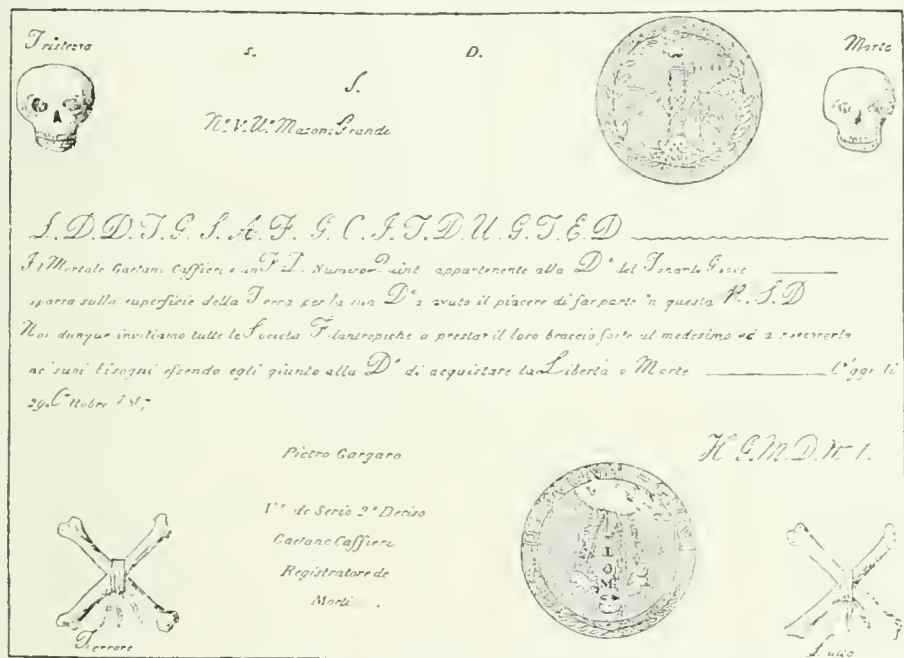 Tristezza
Morte
S. D.
S.
N.º V. Uº Mazoni Grandi
L.D.D.T.G.S.A.F.G.C.I.T.D.U.G.T.E.D
Il Mortale Gaetano Caffieri è un F. D. Numero appartenente alla Dª del Tonante Giove
sparsa sulla superficie della Terra per la sua Dª avuto il piacere di far parte in questa R. S. D
Noi dunque invitiamo tutte le Società Filantropiche a prestar il loro braccio forte al medesimo ed a
ne' suoi bisogni essendo egli giunto alla Dª di acquistare la Libertà o Morte Oggi li
29. Ottobre
Pietro Gargaro
H G. M. D. Nº 1.
Vº de Serio 2º Deciso
Gaetano Caffieri
Registratore de
Morti.
Terrore
Lutto